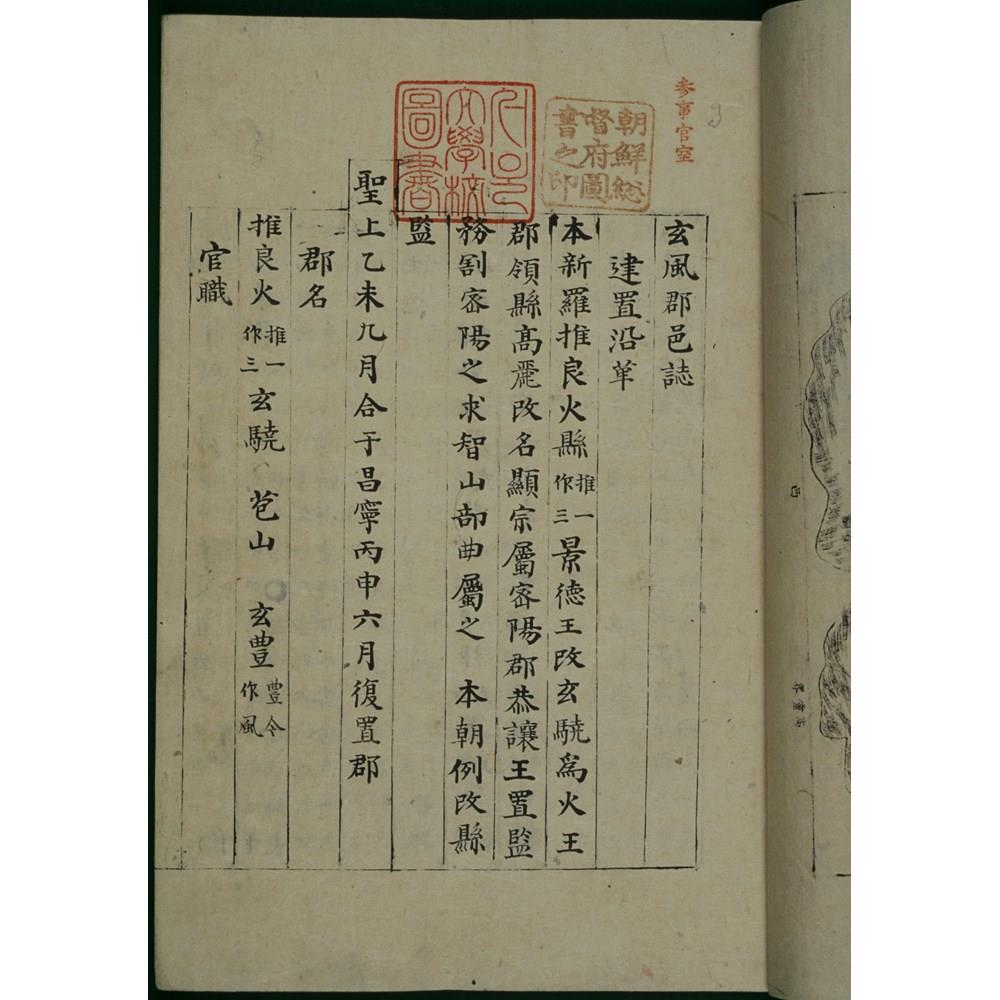 参事官室
朝鮮総
督府圖
書之印
文學校
圖書
玄風郡邑誌
建置沿革
本新羅推良火縣推一作三景德王改玄驍爲火王
郡領縣高麗改名顯宗屬密陽郡恭讓王置監
務割密陽之求智山部曲屬之 本朝例改縣
監
聖上乙未九月合于昌寧丙申六月復置郡
郡名
推良火推一作三玄驍 苞山 玄豊豊今作風
官職